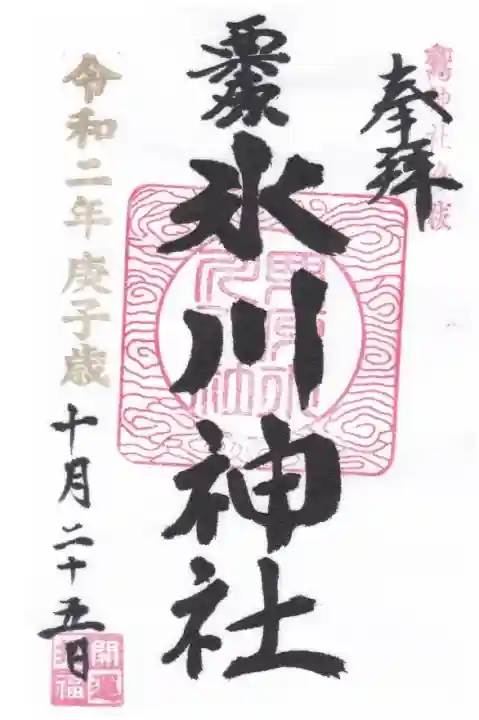 奉拝
栗原
氷川神社
令和二年庚子歳
十月二十五日
開運
招福